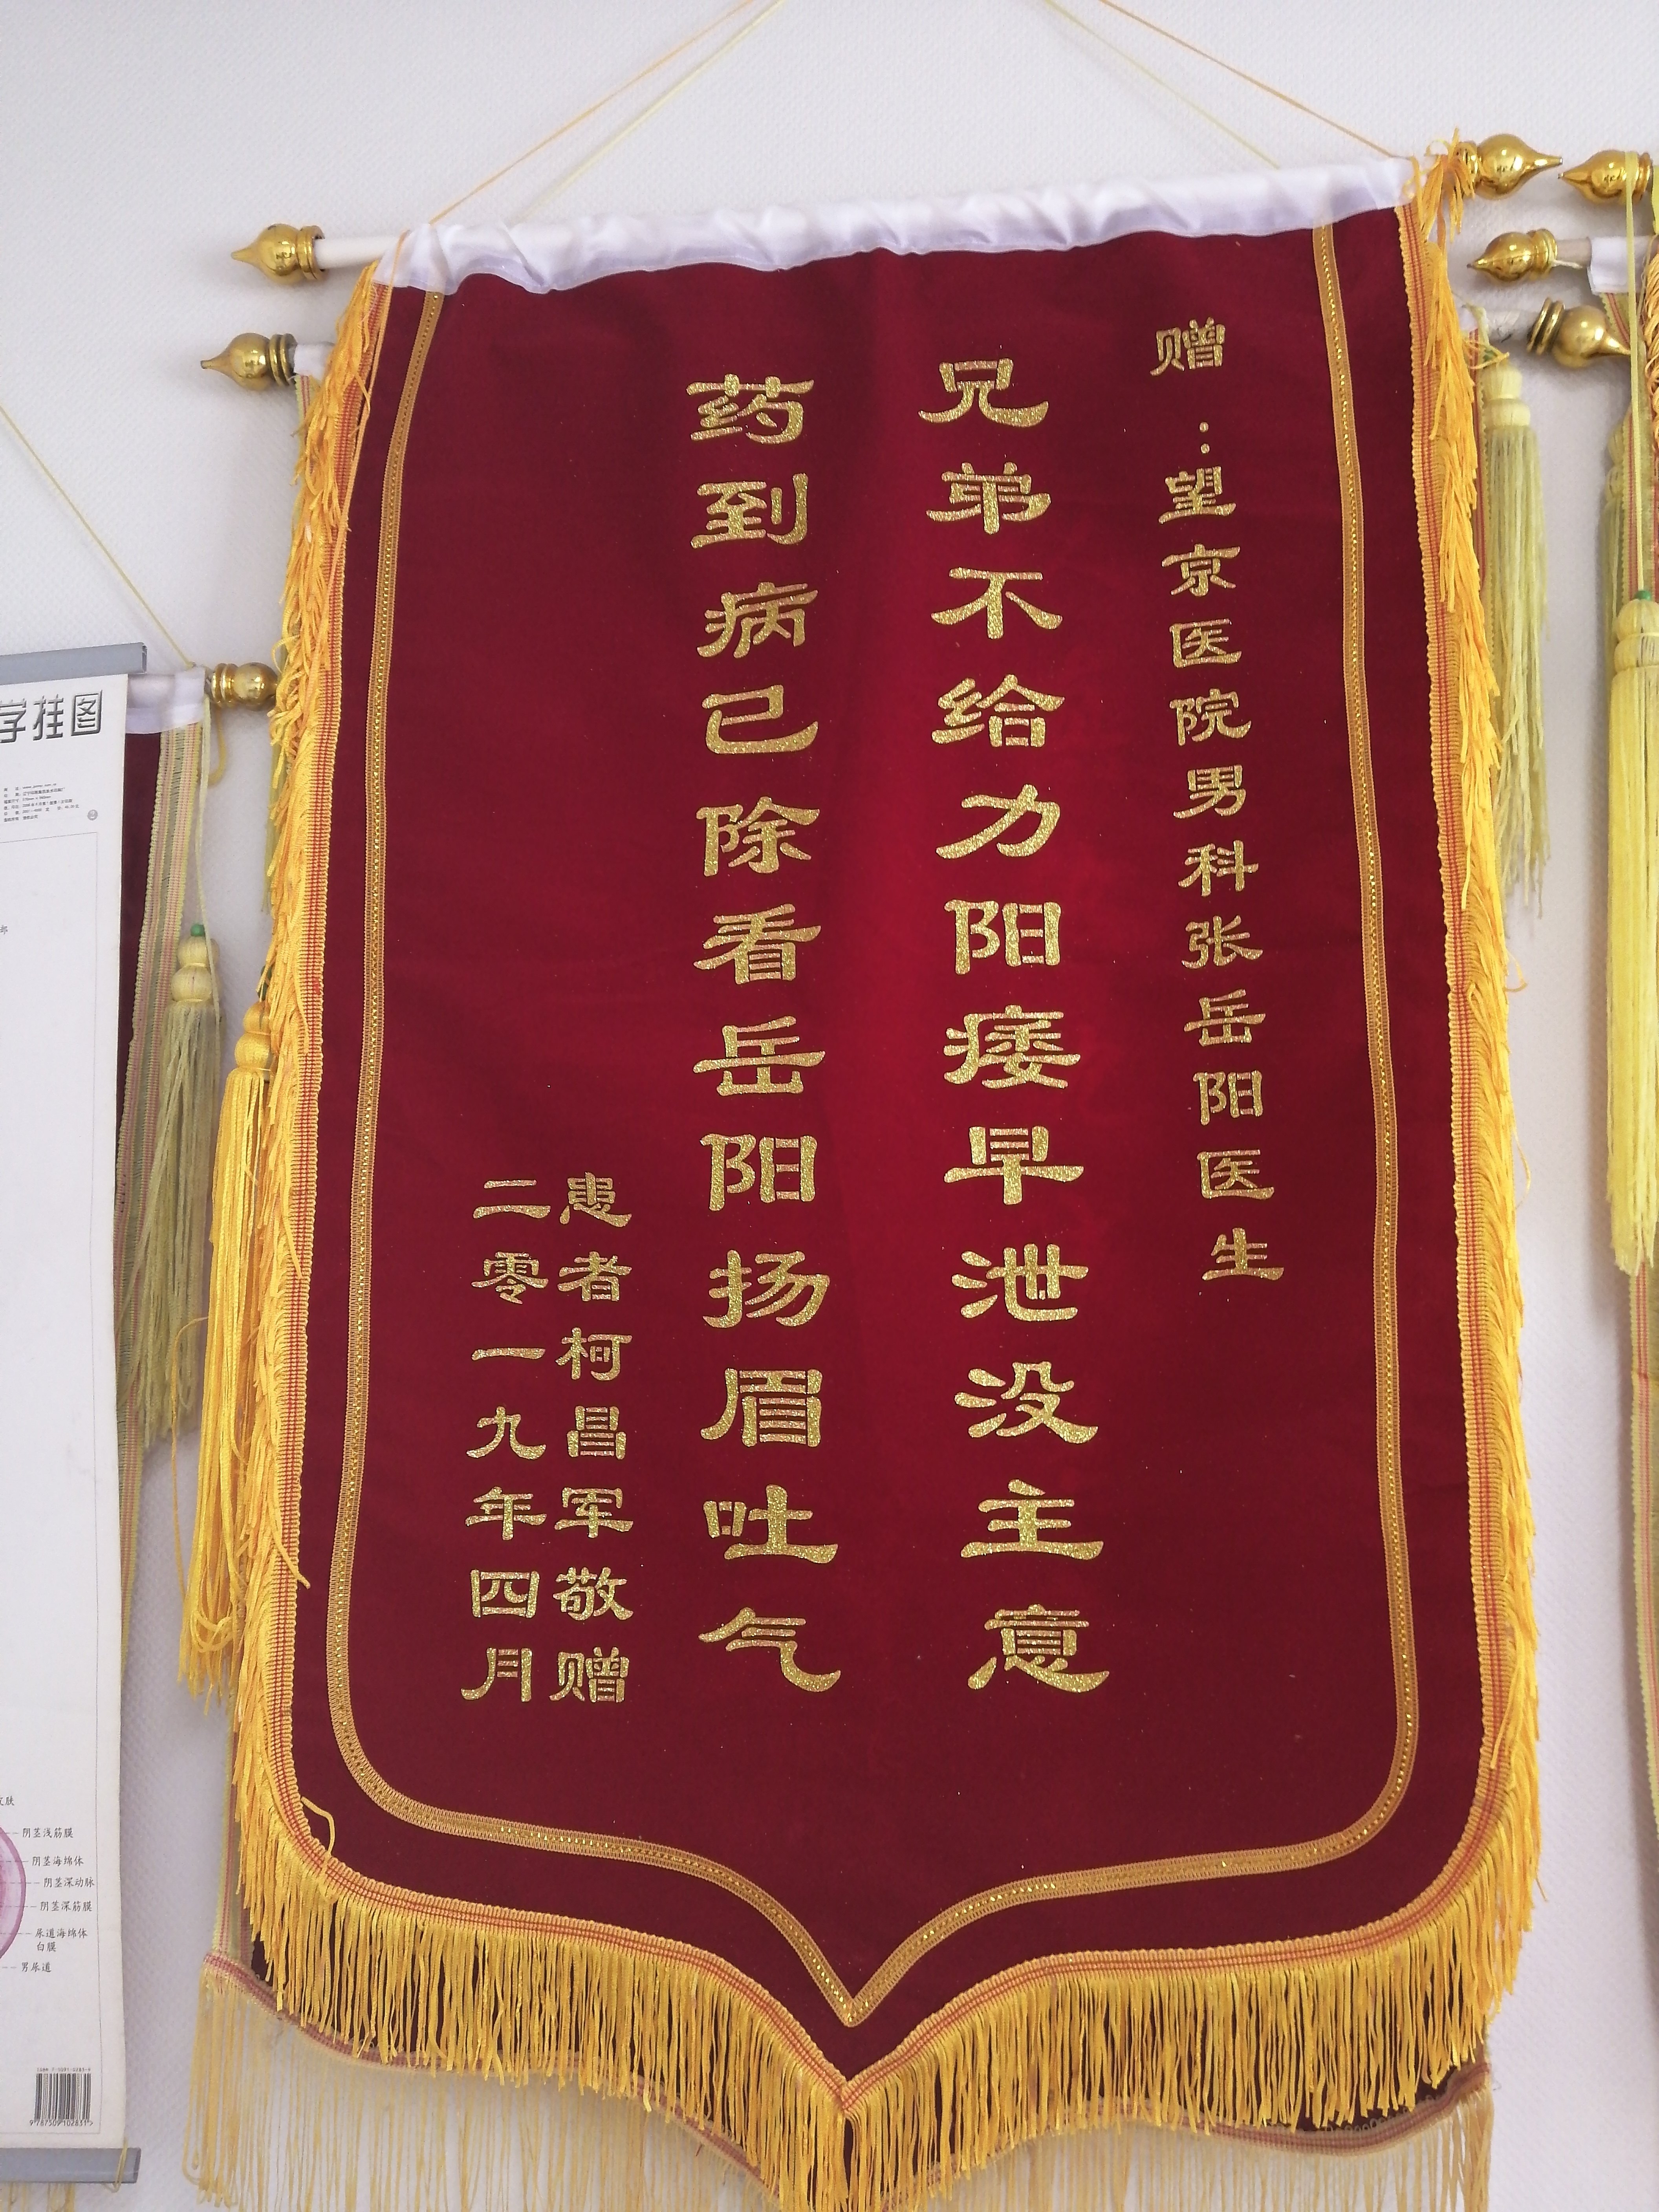 赠：望京医院男科张岳阳医生
兄弟不给力阳痿早泄没主意
药到病已除看岳阳扬眉吐气
患者柯昌军敬赠
二零一九年四月
学挂图
阴茎浅筋膜
阴茎海绵体
阴茎深动脉
阴茎深筋膜
尿道海绵体
白膜
男尿道